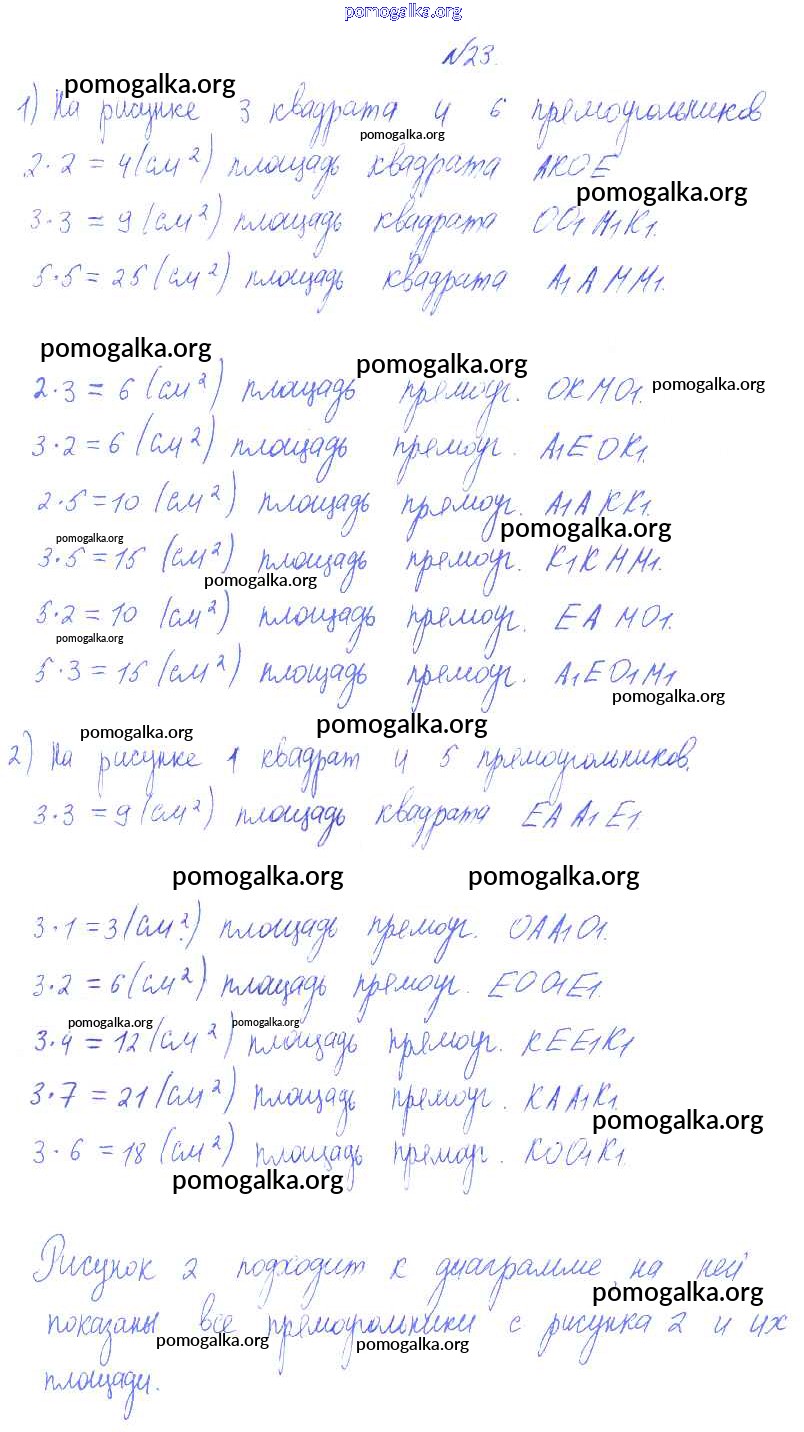 pomogalka.org
№23.
pomogalka.org
1) На рисунке 3 квадрата и 6 прямоугольников
pomogalka.org
2·2 = 4(см²) площадь квадрата АКОЕ
pomogalka.org
3·3 = 9 (см²) площадь квадрата ОО₁М₁К₁.
5·5 = 25 (см²) площадь квадрата А₁АММ₁.
pomogalka.org
pomogalka.org
pomogalka.org
2·3 = 6 (см²) площадь прямоуг. ОКМО₁.
3·2 = 6 (см²) площадь прямоуг. А₁ЕОК₁.
2·5 = 10 (см²) площадь прямоуг. А₁АКК₁.
pomogalka.org
pomogalka.org
3·5 = 15 (см²) площадь прямоуг. К₁КММ₁.
pomogalka.org
5·2 = 10 (см²) площадь прямоуг. ЕАМО₁.
pomogalka.org
5·3 = 15 (см²) площадь прямоуг. А₁ЕО₁М₁
pomogalka.org
pomogalka.org
pomogalka.org
2) На рисунке 1 квадрат и 5 прямоугольников.
3·3 = 9 (см²) площадь квадрата ЕАА₁Е₁.
pomogalka.org
pomogalka.org
3·1 = 3 (см²) площадь прямоуг. ОАА₁О₁.
3·2 = 6 (см²) площадь прямоуг. ЕОО₁Е₁.
pomogalka.org
pomogalka.org
3·4 = 12 (см²) площадь прямоуг. КЕЕ₁К₁
3·7 = 21 (см²) площадь прямоуг. КАА₁К₁.
pomogalka.org
3·6 = 18 (см²) площадь прямоуг. КОО₁К₁.
pomogalka.org
Рисунок 2 подходит к диаграмме, на ней
pomogalka.org
показаны все прямоугольники с рисунка 2 и их
pomogalka.org
pomogalka.org
площади.